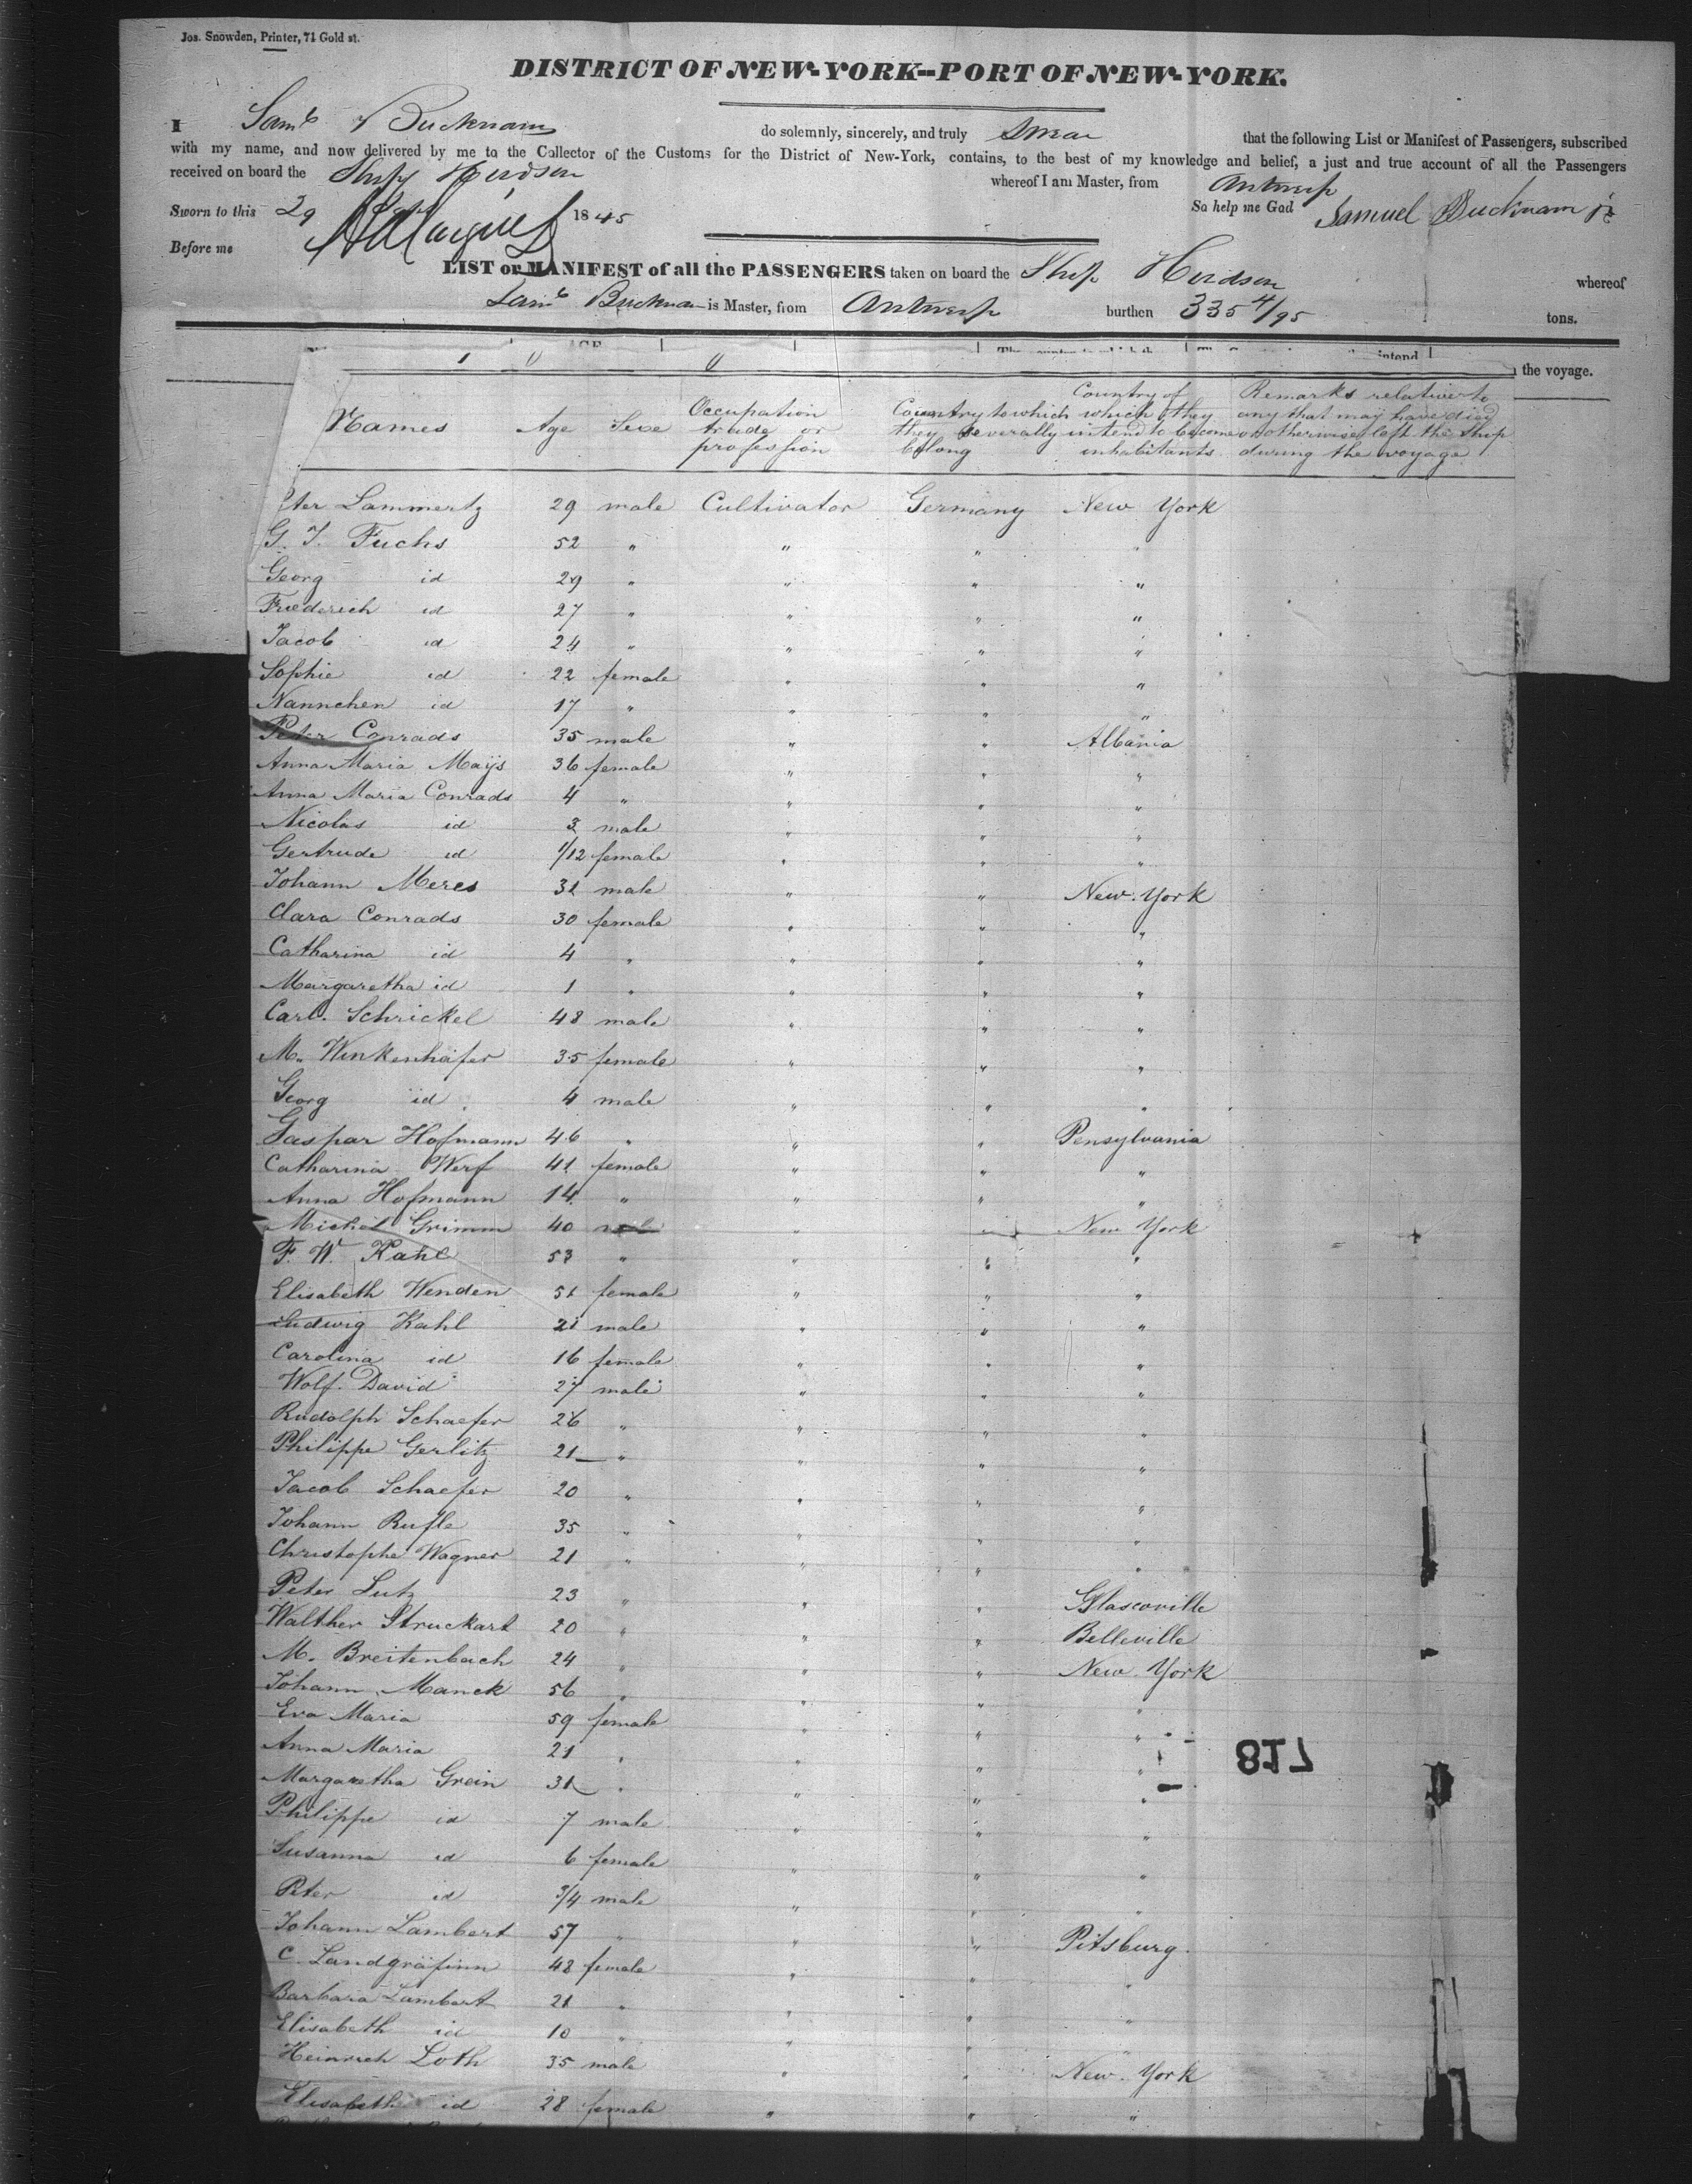 Jos. Snowden, Printer, 71 Gold st.
DISTRICT OF NEW-YORK--PORT OF NEW-YORK.
I Saml Bucknam do solemnly, sincerely, and truly swear that the following List or Manifest of Passengers, subscribed
with my name, and now delivered by me to the Collector of the Customs for the District of New-York, contains, to the best of my knowledge and belief, a just and true account of all the Passengers
received on board the Ship Herdson whereof I am Master, from Antwerp
Sworn to this 29 1845 So help me God Samuel Bucknam jr
Before me
LIST or MANIFEST of all the PASSENGERS taken on board the Ship Herdson whereof
Saml Bucknam is Master, from Antwerp burthen 335 4/95 tons.
AGE intend
the voyage.
Names Age Sexe Occupation trade or profession Country to which they severally belong Country of which they intend to become inhabitants. Remarks relative to any that may have died or otherwise left the Ship during the voyage
eter Lammertz 29 male Cultivator Germany New York
G. J. Fuchs 52 " " " "
Georg id 29 " " " "
Friederich id 27 " " " "
Jacob id 24 " " " "
Sophie id 22 female " " "
Nannchen id 17 " " " "
Peter Conrads 35 male " " Albania
Anna Maria Mays 36 female " " "
Anna Maria Conrads 4 " " " "
Nicolas id 3 male " " "
Gertrude id 1/12 female " " "
Johann Meres 31 male " " New York
Clara Conrads 30 female " " "
Catharina id 4 " " " "
Margaretha id 1 " " " "
Carl. Schrickel 48 male " " "
M. Winkenhäfer 35 female " " "
Georg id 4 male " " "
Gaspar Hofmann 46 " " " Pensylvania
Catharina Werf 41 female " " "
Anna Hofmann 14 " " " "
Michel Grimm 40 male " " New York
F. W. Kahl 53 " " " "
Elisabeth Wenden 51 female " " "
Ludwig Kahl 21 male " " "
Carolina id 16 female " " "
Wolf David 27 male " " "
Rudolph Schaefer 26 " " " "
Philippe Gerlitz 21 " " " "
Jacob Schaefer 20 " " " "
Johann Rufle 35 " " " "
Christophe Wagner 21 " " " "
Peter Lutz 23 " " " Glascoville
Walther Struckart 20 " " " Belleville
M. Breitenbach 24 " " " New York
Johann Manck 56 " " " "
Eva Maria 59 female " " "
Anna Maria 21 " " " "
817
Margaretha Grein 31 " " " "
Philippe id 7 male " " "
Susanna id 6 female " " "
Peter id 3/4 male " " "
Johann Lambert 57 " " " Pitsburg.
C. Landgräfinn 48 female " " "
Barbara Lambert 21 " " " "
Elisabeth id 10 " " " "
Heinrich Loth 35 male " " New York
Elisabeth id 28 female " " "